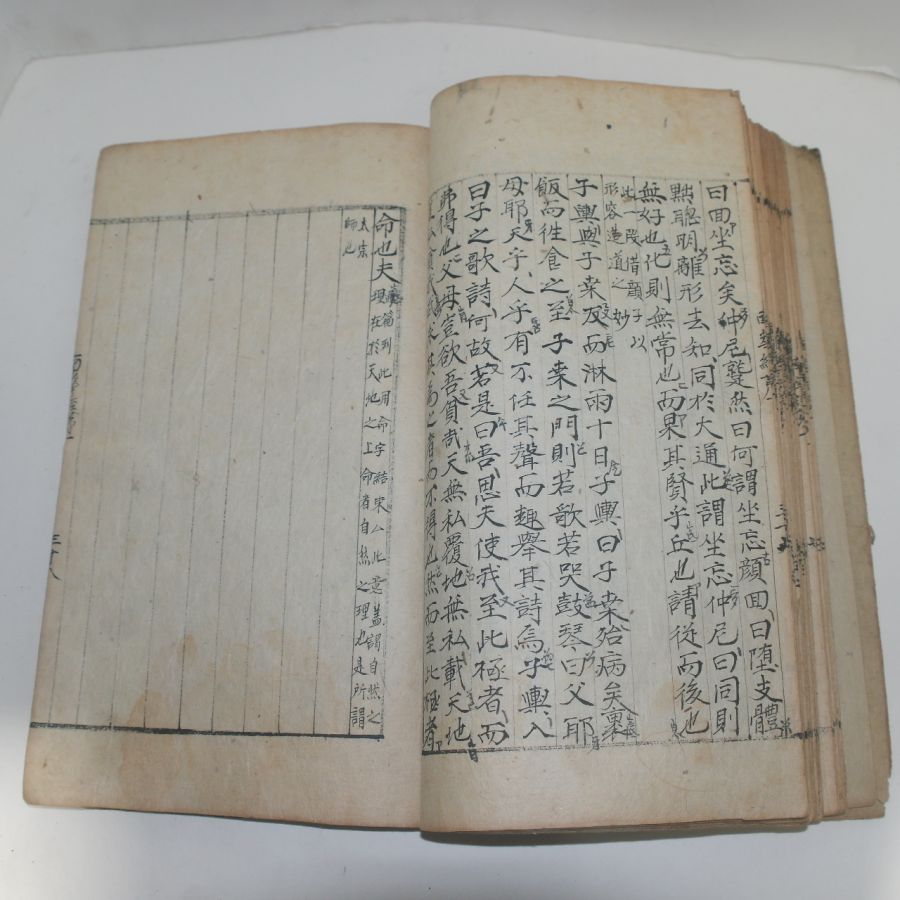 曰回坐忘矣仲尼蹵然曰何謂坐忘顔回曰堕支體
黜聰明離形去知同於大通此謂坐忘仲尼曰同則
無好也化則無常也而果其賢乎丘也請從而後也
此一段借顔子以
形容造道之妙
子輿與子桒友而淋雨十日子輿曰子桒殆病矣裹
飯而徃食之至子桒之門則若歌若哭鼓琴曰父耶
母耶天乎人乎有不任其聲而趣舉其詩焉子輿入
曰子之歌詩何故若是曰吾思夫使我至此極者而
弗得也父母豈欲吾貧㢤天無私覆地無私載天地
豈私貧我㢤求其爲之者而不得也然而至此極者
命也夫
篇到此用命字結果人此意盖謂自然之
理在於天地之上命者自然之理也是所謂
太宗
師也